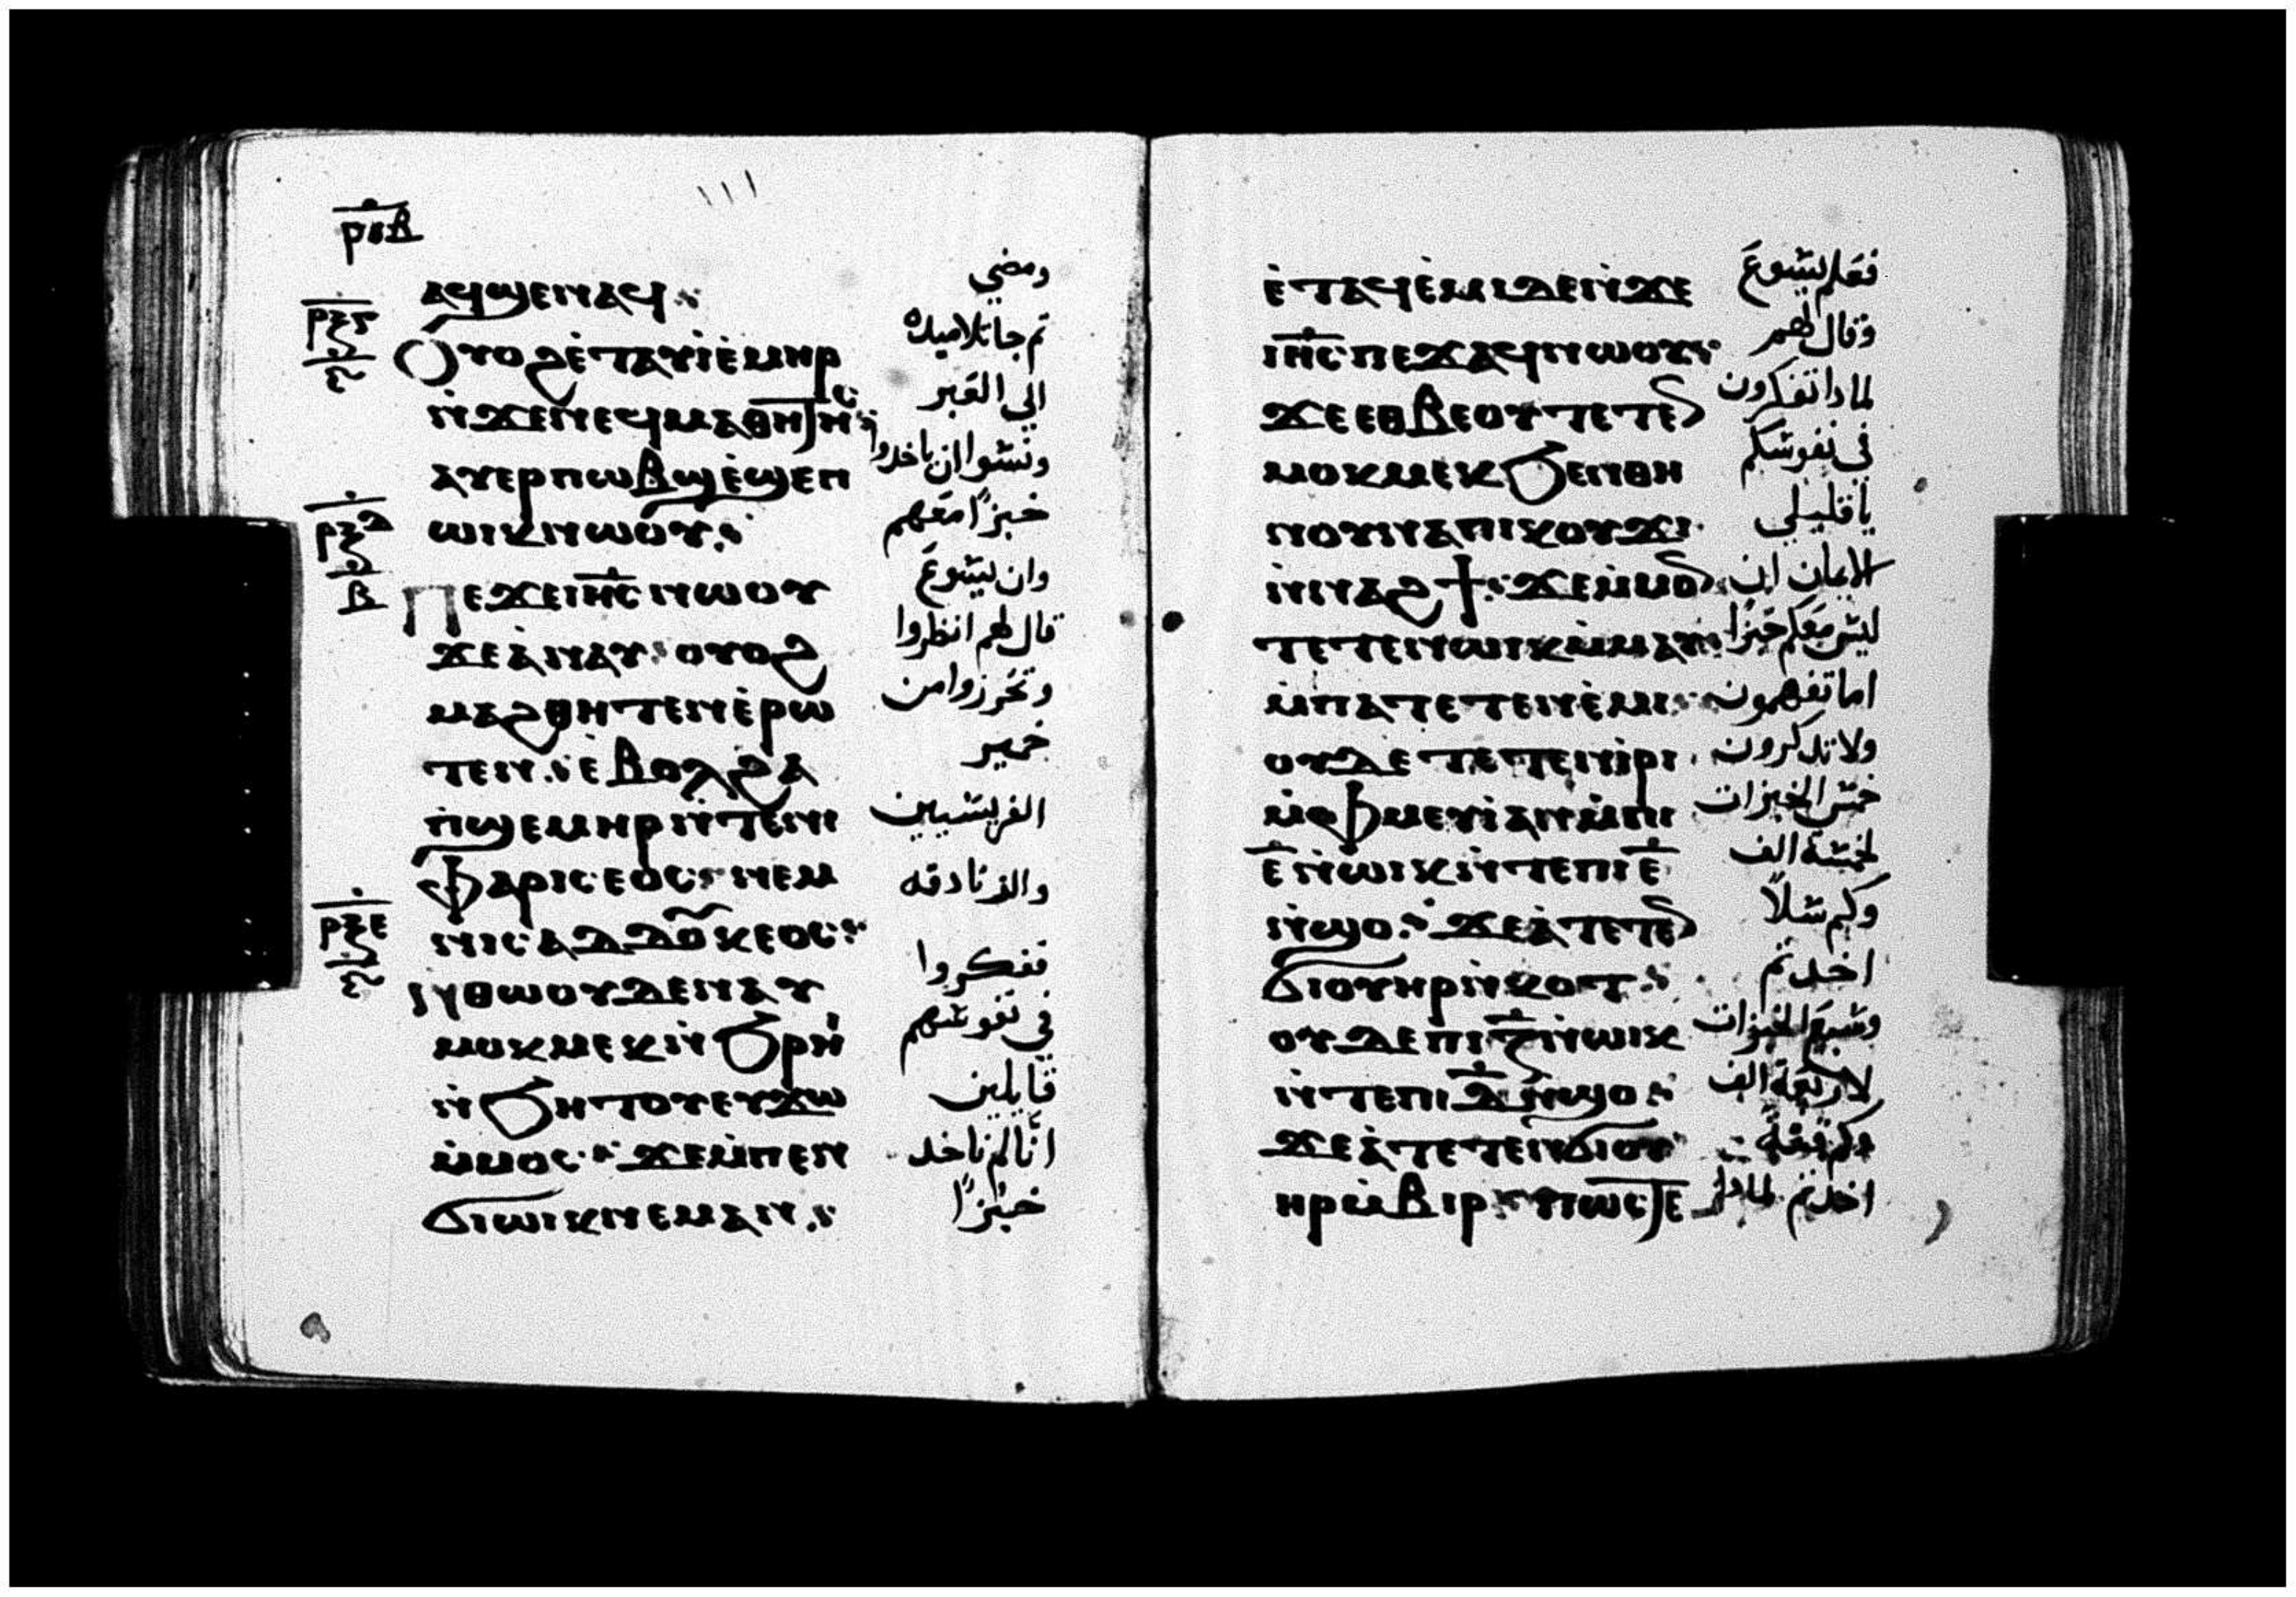 ⲣⲓⲃ
ⲁϥϣⲉⲛⲁϥ
ومضي
ⲣⲝⲅ
ⲟⲩⲟϩ ⲉ̇ⲧⲁⲩⲓ̇ ⲉ̇ⲙⲏⲣ
ثم جا تلاميده
ⲛ̇ϫⲉⲛⲉϥⲙⲁⲑⲏⲧⲏⲥ
الي العبر
ⲁⲩⲉⲣⲡⲱⲃϣ ⲉ̇ϣⲉⲡ
ونسوا ان ياخدوا
ⲣⲝⲇ
ⲃ
ⲱⲓⲕ ⲛⲱⲟⲩ
خبزًا معهم
ⲡⲉϫⲉ ⲓⲏⲥ ⲛⲱⲟⲩ
وان يسوع
ϫⲉ ⲁ̇ⲛⲁⲩ ⲟⲩⲟϩ
قال لهم انظروا
ⲙⲁϩⲑⲏⲧⲉⲛ ⲉ̇ⲣⲱ
وتحرزوا من
ⲧⲉⲛ ⲉ̇ⲃⲟⲗϩⲁ
خمير
ⲡ̇ϣⲉⲙⲏⲣ ⲛ̇ⲧⲉⲛⲓ
الفريسيين
ⲫⲁⲣⲓⲥⲉⲟⲥ ⲛⲉⲙ
والزنادقه
ⲣⲝⲉ
ⲛⲓⲥⲁⲇⲇⲟⲩⲕⲉⲟⲥ
ⲛ̇ⲑⲱⲟⲩ ⲇⲉ ⲛⲁⲩ
ففكروا
ⲙⲟⲕⲙⲉⲕ ⲛ̇ϧⲣⲏⲓ
في نفوسهم
ⲛ̇ϧⲏⲧⲟⲩ ⲉⲩϫⲱ
قايلين
ⲙ̇ⲙⲟⲥ ϫⲉ ⲙ̇ⲡⲉⲛ
انّا لم ناخد
ϭⲓⲱⲓⲕ ⲛⲉⲙⲁⲛ
خبزًا
ⲉ̇ⲧⲁϥⲉ̇ⲙⲓ ⲇⲉ ⲛ̇ϫⲉ
فعلم يسوع
ⲓⲏⲥ ⲡⲉϫⲁϥ ⲛⲱⲟⲩ
وقال لهم
ϫⲉ ⲉⲑⲃⲉⲟⲩ ⲧⲉⲧⲉⲛ
لمادا تفكرون
ⲙⲟⲕⲙⲉⲕ ϧⲉⲛⲑⲏ
في نفوسكم
ⲛⲟⲩ ⲛⲁⲡⲓⲕⲟⲩϫⲓ
يا قليلي
ⲛ̇ⲛⲁϩϯ ϫⲉ ⲙ̇ⲙⲟⲛ
الايمان ان
ⲧⲉⲧⲉⲛⲱⲓⲕ ⲙ̇ⲙⲁⲩ
ليس معكم خبزًا
ⲙ̇ⲡⲁⲧⲉⲧⲉⲛⲉ̇ⲙⲓ
اما تفهمون
ⲟⲩⲇⲉ ⲧⲉⲧⲉⲛⲓ̇ⲣⲓ
ولا تدكرون
ⲙ̇ⲫⲙⲉⲩⲓ̇ ⲁⲛ ⲙ̇ⲡⲓ
خمس الخبزات
ⲉ̅ ⲛ̇ⲱⲓⲕ ⲛ̇ⲧⲉⲡⲓⲉ̅
لخمسة الف
ⲛ̇ϣⲟ ϫⲉ ⲁ̇ⲧⲉⲧⲉⲛ
وكم سلًا
ϭⲓⲟⲩⲏⲣ ⲛ̇ⲕⲟⲧ
اخدتم
ⲟⲩⲇⲉ ⲡⲓⲍ̅ ⲛ̇ⲱⲓⲕ
وسبع الخبزات
ⲛ̇ⲧⲉⲡⲓⲇ̅ ⲛ̇ϣⲟ
لاربعة الف
ϫⲉ ⲁ̇ⲧⲉⲧⲉⲛϭⲓⲟⲩ
وكم قفة
ⲏⲣ ⲙ̇ⲃⲓⲣ ⲡⲱⲥ ⲧⲉ
اخدتم لمادا